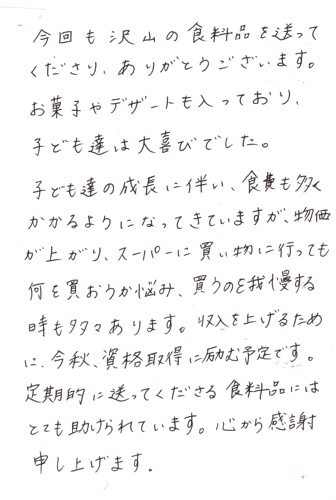 今回も沢山の食料品を送って
くださり、ありがとうございます。
お菓子やデザートも入っており、
子ども達は大喜びでした。
子ども達の成長に伴い、食費も多く
かかるようになってきていますが、物価
が上がり、スーパーに買い物に行っても
何を買おうか悩み、買うのを我慢する
時も多々あります。収入を上げるため
に、今秋、資格取得に励む予定です。
定期的に送ってくださる食料品には
とても助けられています。心から感謝
申し上げます.